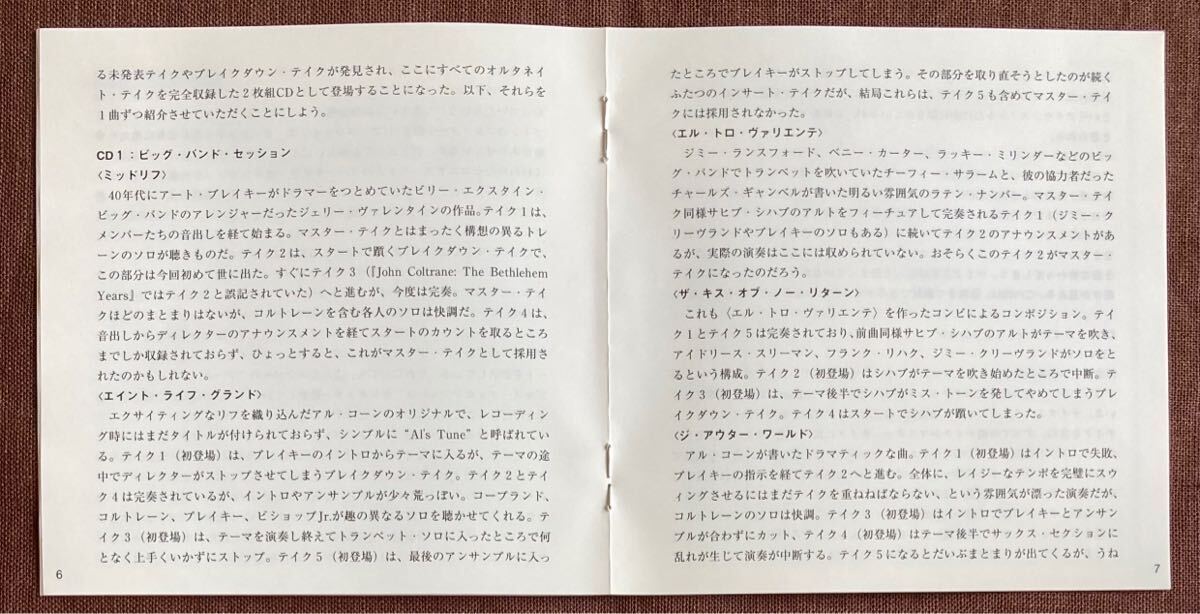 る未発表テイクやブレイクダウン・テイクが発見され、ここにすべてのオルタネイ
ト・テイクを完全収録した2枚組CDとして登場することになった。以下、それらを
1曲ずつ紹介させていただくことにしよう。
CD1：ビッグ・バンド・セッション
〈ミッドリフ〉
40年代にアート・ブレイキーがドラマーをつとめていたビリー・エクスタイン・
ビッグ・バンドのアレンジャーだったジェリー・ヴァレンタインの作品。テイク1は、
メンバーたちの音出しを経て始まる。マスター・テイクとはまったく構想の異るトレ
ーンのソロが聴きものだ。テイク2は、スタートで躓くブレイクダウン・テイクで、
この部分は今回初めて世に出た。すぐにテイク3（『John Coltrane: The Bethlehem
Years』ではテイク2と誤記されていた）へと進むが、今度は完奏。マスター・テイ
クほどのまとまりはないが、コルトレーンを含む各人のソロは快調だ。テイク4は、
音出しからディレクターのアナウンスメントを経てスタートのカウントを取るところ
までしか収録されておらず、ひょっとすると、これがマスター・テイクとして採用さ
れたのかもしれない。
〈エイント・ライフ・グランド〉
エクサイティングなリフを織り込んだアル・コーンのオリジナルで、レコーディン
グ時にはまだタイトルが付けられておらず、シンプルに“Al's Tune”と呼ばれてい
る。テイク1（初登場）は、ブレイキーのイントロからテーマに入るが、テーマの途
中でディレクターがストップさせてしまうブレイクダウン・テイク。テイク2とテイ
ク4は完奏されているが、イントロやアンサンブルが少々荒っぽい。コープランド、
コルトレーン、ブレイキー、ビショップJr.が趣の異なるソロを聴かせてくれる。テ
イク3（初登場）は、テーマを演奏し終えてトランペット・ソロに入ったところで何
となく上手くいかずにストップ。テイク5（初登場）は、最後のアンサンブルに入っ
6
たところでブレイキーがストップしてしまう。その部分を取り直そうとしたのが続く
ふたつのインサート・テイクだが、結局これらは、テイク5も含めてマスター・テイ
クには採用されなかった。
〈エル・トロ・ヴァリエンテ〉
ジミー・ランスフォード、ベニー・カーター、ラッキー・ミリンダーなどのビッ
グ・バンドでトランペットを吹いていたチーフィー・サラームと、彼の協力者だった
チャールズ・ギャンベルが書いた明るい雰囲気のラテン・ナンバー。マスター・テイ
ク同様サヒブ・シハブのアルトをフィーチュアして完奏されるテイク1（ジミー・ク
リーヴランドやブレイキーのソロもある）に続いてテイク2のアナウンスメントがあ
るが、実際の演奏はここには収められていない。おそらくこのテイク2がマスター・
テイクになったのだろう。
〈ザ・キス・オブ・ノー・リターン〉
これも〈エル・トロ・ヴァリエンテ〉を作ったコンビによるコンポジション。テイ
ク1とテイク5は完奏されており、前曲同様サヒブ・シハブのアルトがテーマを吹き、
アイドリース・スリーマン、フランク・リハク、ジミー・クリーヴランドがソロをと
るという構成。テイク2（初登場）はシハブがテーマを吹き始めたところで中断。テ
イク3（初登場）は、テーマ後半でシハブがミス・トーンを発してやめてしまうブレ
イクダウン・テイク。テイク4はスタートでシハブが躓いてしまった。
〈ジ・アウター・ワールド〉
アル・コーンが書いたドラマティックな曲。テイク1（初登場）はイントロで失敗、
ブレイキーの指示を経てテイク2へと進む。全体に、レイジーなテンポを完璧にスウ
ィングさせるにはまだテイクを重ねねばならない、という雰囲気が漂った演奏だが、
コルトレーンのソロは快調。テイク3（初登場）はイントロでブレイキーとアンサン
ブルが合わずにカット、テイク4（初登場）はテーマ後半でサックス・セクションに
乱れが生じて演奏が中断する。テイク5になるとだいぶまとまりが出てくるが、うね
7